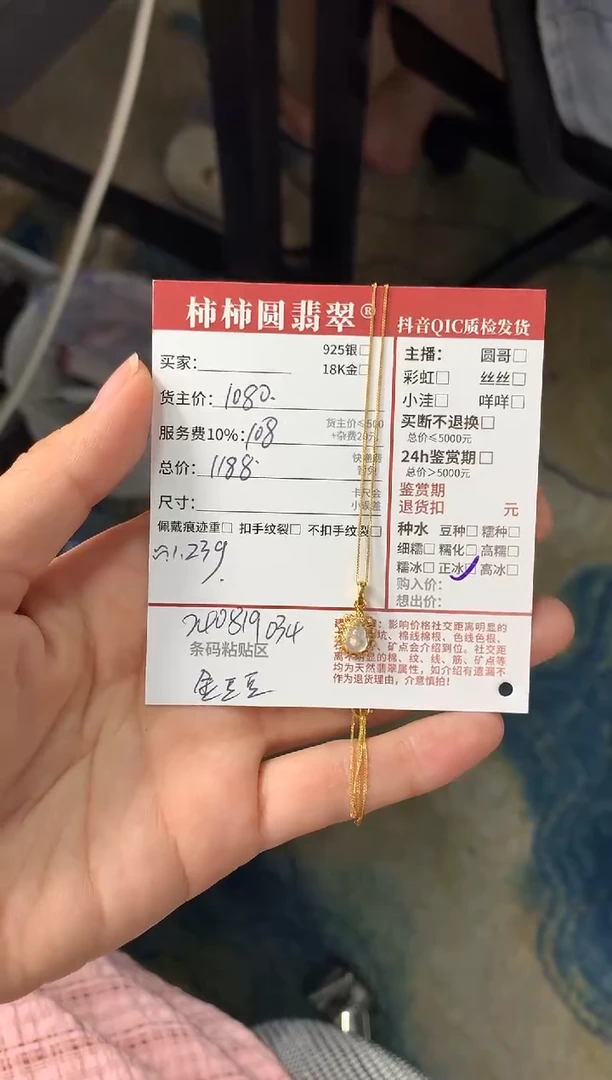 柿柿圆翡翠®
抖音QIC质检发货
925银□
买家:
18K金□
货主价: 1080.
服务费10%: 108
总价: 1188.
尺寸:
佩戴痕迹重□ 扣手纹裂□ 不扣手纹裂□
≈1.23g
主播: 圆哥□
彩虹□ 丝丝□
小洼□ 咩咩□
买断不退换□
总价≤5000元
24h鉴赏期□
总价>5000元
鉴赏期
退货扣 元
种水 豆种□ 糯种□
细糯□ 糯化□ 高糯□
糯冰□ 正冰☑ 高冰□
购入价:
想出价:
240819034
条码粘贴区
金豆豆
影响价格社交距离明显的
坑、棉线棉根、色线色根、
矿点会介绍到位。社交距
离不明显的棉、纹、线、筋、矿点等
均为天然翡翠属性，如介绍有遗漏不
作为退货理由，介意慎拍！